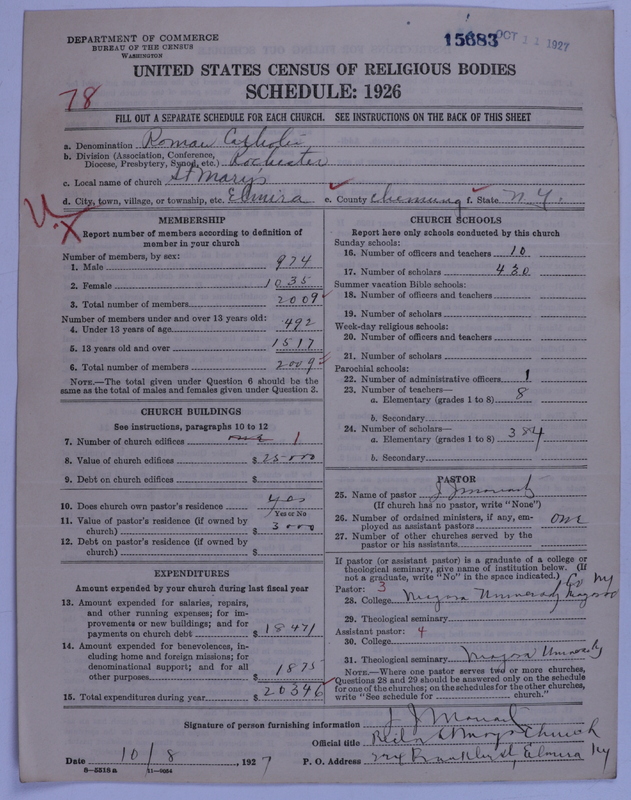 DEPARTMENT OF COMMERCE
BUREAU OF THE CENSUS
WASHINGTON
15683
OCT 11 1927
UNITED STATES CENSUS OF RELIGIOUS BODIES
SCHEDULE: 1926
78
FILL OUT A SEPARATE SCHEDULE FOR EACH CHURCH. SEE INSTRUCTIONS ON THE BACK OF THIS SHEET
a. Denomination Roman Catholic
b. Division (Association, Conference, Diocese, Presbytery, Synod, etc.) Rochester
c. Local name of church St Mary's
d. City, town, village, or township, etc. Elmira e. County Chemung f. State N.Y.
MEMBERSHIP
Report number of members according to definition of
member in your church
Number of members, by sex:
1. Male 974
2. Female 1035
3. Total number of members 2009
Number of members under and over 13 years old:
4. Under 13 years of age 492
5. 13 years old and over 1517
6. Total number of members 2009
NOTE.—The total given under Question 6 should be the
same as the total of males and females given under Question 3.
CHURCH BUILDINGS
See instructions, paragraphs 10 to 12
7. Number of church edifices one 1
8. Value of church edifices $ 25000
9. Debt on church edifices $
10. Does church own pastor's residence? yes
Yes or No
11. Value of pastor's residence (if owned by
church) $ 3000
12. Debt on pastor's residence (if owned by
church) $
EXPENDITURES
Amount expended by your church during last fiscal year
13. Amount expended for salaries, repairs,
and other running expenses; for im-
provements or new buildings; and for
payments on church debt $ 18471
14. Amount expended for benevolences, in-
cluding home and foreign missions; for
denominational support; and for all
other purposes $ 1875
15. Total expenditures during year $ 20346
CHURCH SCHOOLS
Report here only schools conducted by this church
Sunday schools:
16. Number of officers and teachers 10
17. Number of scholars 430
Summer vacation Bible schools:
18. Number of officers and teachers
19. Number of scholars
Week-day religious schools:
20. Number of officers and teachers
21. Number of scholars
Parochial schools:
22. Number of administrative officers 1
23. Number of teachers—
a. Elementary (grades 1 to 8) 8
b. Secondary
24. Number of scholars—
a. Elementary (grades 1 to 8) 384
b. Secondary
PASTOR
25. Name of pastor J J
(If church has no pastor, write "None")
26. Number of ordained ministers, if any, em-
ployed as assistant pastors one
27. Number of other churches served by the
pastor or his assistants
If pastor (or assistant pastor) is a graduate of a college or
theological seminary, give name of institution below. (If
not a graduate, write "No" in the space indicated.)
Pastor: 3
28. College Niagara University Niagara Co NY
29. Theological seminary
Assistant pastor: 4
30. College
31. Theological seminary Niagara University
NOTE.—Where one pastor serves two or more churches,
Questions 28 and 29 should be answered only on the schedule
for one of the churches; on the schedules for the other churches,
write "See schedule for church."
Signature of person furnishing information J J
Official title St Marys Church
Date 10/8, 1927 P. O. Address Franklin st, Elmira NY
8—5518 a 11—9054